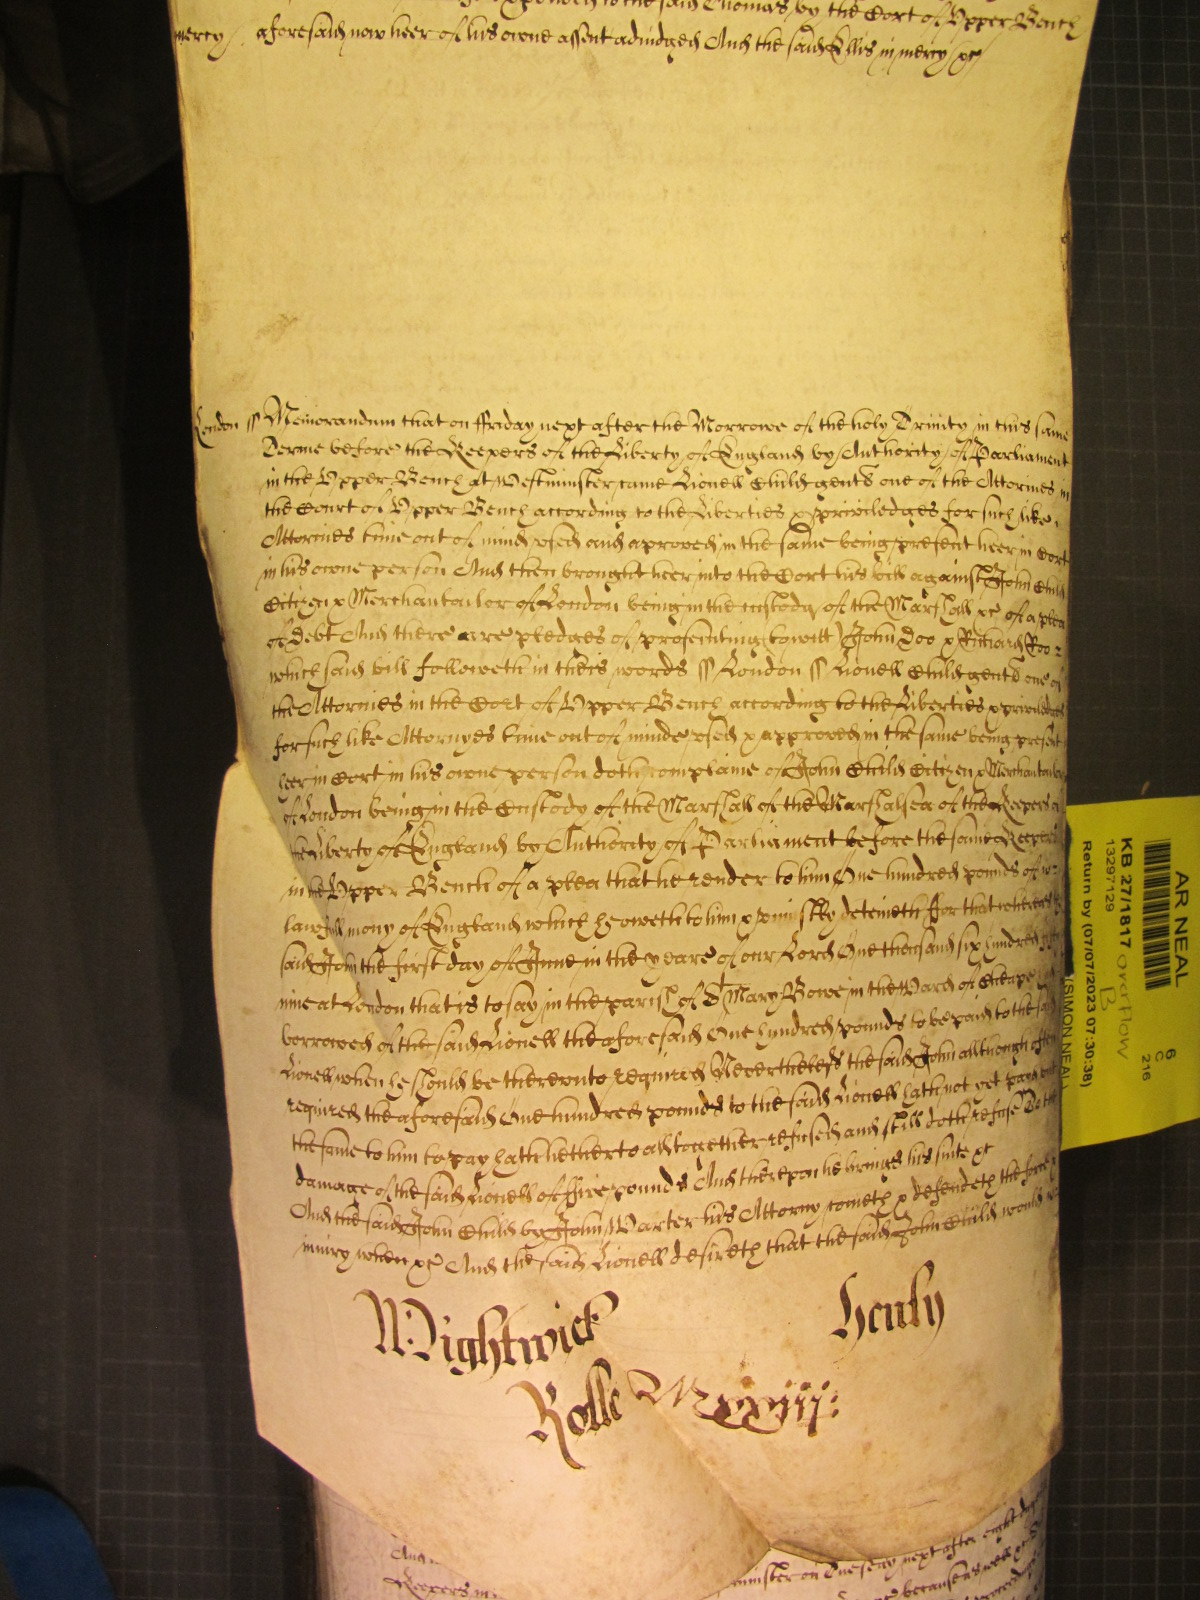 to the said Thomas by the Cort of Upper Bench
mercy aforesaid now heer of his owne assent adiudged And the said Ellis in mercy &c
London ss Memorandum that on Friday next after the Morrowe of the holy Trinity in this same
Terme before the Keepers of the Liberty of England by Authority of Parliament
in the Upper Bench at Westminster came Lionell Child gent one of the Attornies in
the Court of Upper Bench according to the Liberties & priviledges for such like
Attornies time out of mind used and aproved in the same being present heer in Cort
in his owne person And then brought heer into the Cort his bill against John Child
Citizen & Merchantailor of London being in the custody of the Marshall &c of a plea
of debt And there are pledges of prosecuting (towitt) John Doo & Richard Roo
which said bill followeth in theis words ss London ss Lionell Child gent one of
the Attornies in the Cort of Upper Bench according to the Liberties & priviledges
for such like Attornyes time out of minde used & approved in the same being present
heer in Cort in his owne person doth complaine of John Child Citizen & Merchantailor
of London being in the Custody of the Marshall of the Marshalsea of the Keepers of
the Liberty of England by Authority of Parliament before the same Keepers
in the Upper Bench of a plea that he render to him One hundred pounds of
lawfull mony of England which he oweth to him & uniustly deteineth For that whereas the
said John the first day of June in the yeare of our Lord One thousand six hundred fifty
nine at London that is to say in the parish of St Mary Bowe in the Ward of Cheape had
borrowed of the said Lionell the aforesaid One hundred pounds to be paid to the said
Lionell when he should be thereunto required Neverthelesse the said John allthough often
required the aforesaid One hundred pounds to the said Lionell hath not yet paid but
the same to him to pay hath hetherto alltogether refused and still doth refuse To the
damage of the said Lionell of Five pounds And thereupon he brings his suite &c
And the said John Child by John Warter his Attorny cometh & defendeth the force &
iniury when &c And the said Lionell desireth that the said John Child would
Wightwick Henly
Rolle Mxxiij:
AR NEAL
KB 27/1817 overflow
13297129 B
Return by (07/07/2023 07:30:38)
(SIMON NEAL)
6
C
216
And
Keepers in minster on Tuesday next after eight days
because as well